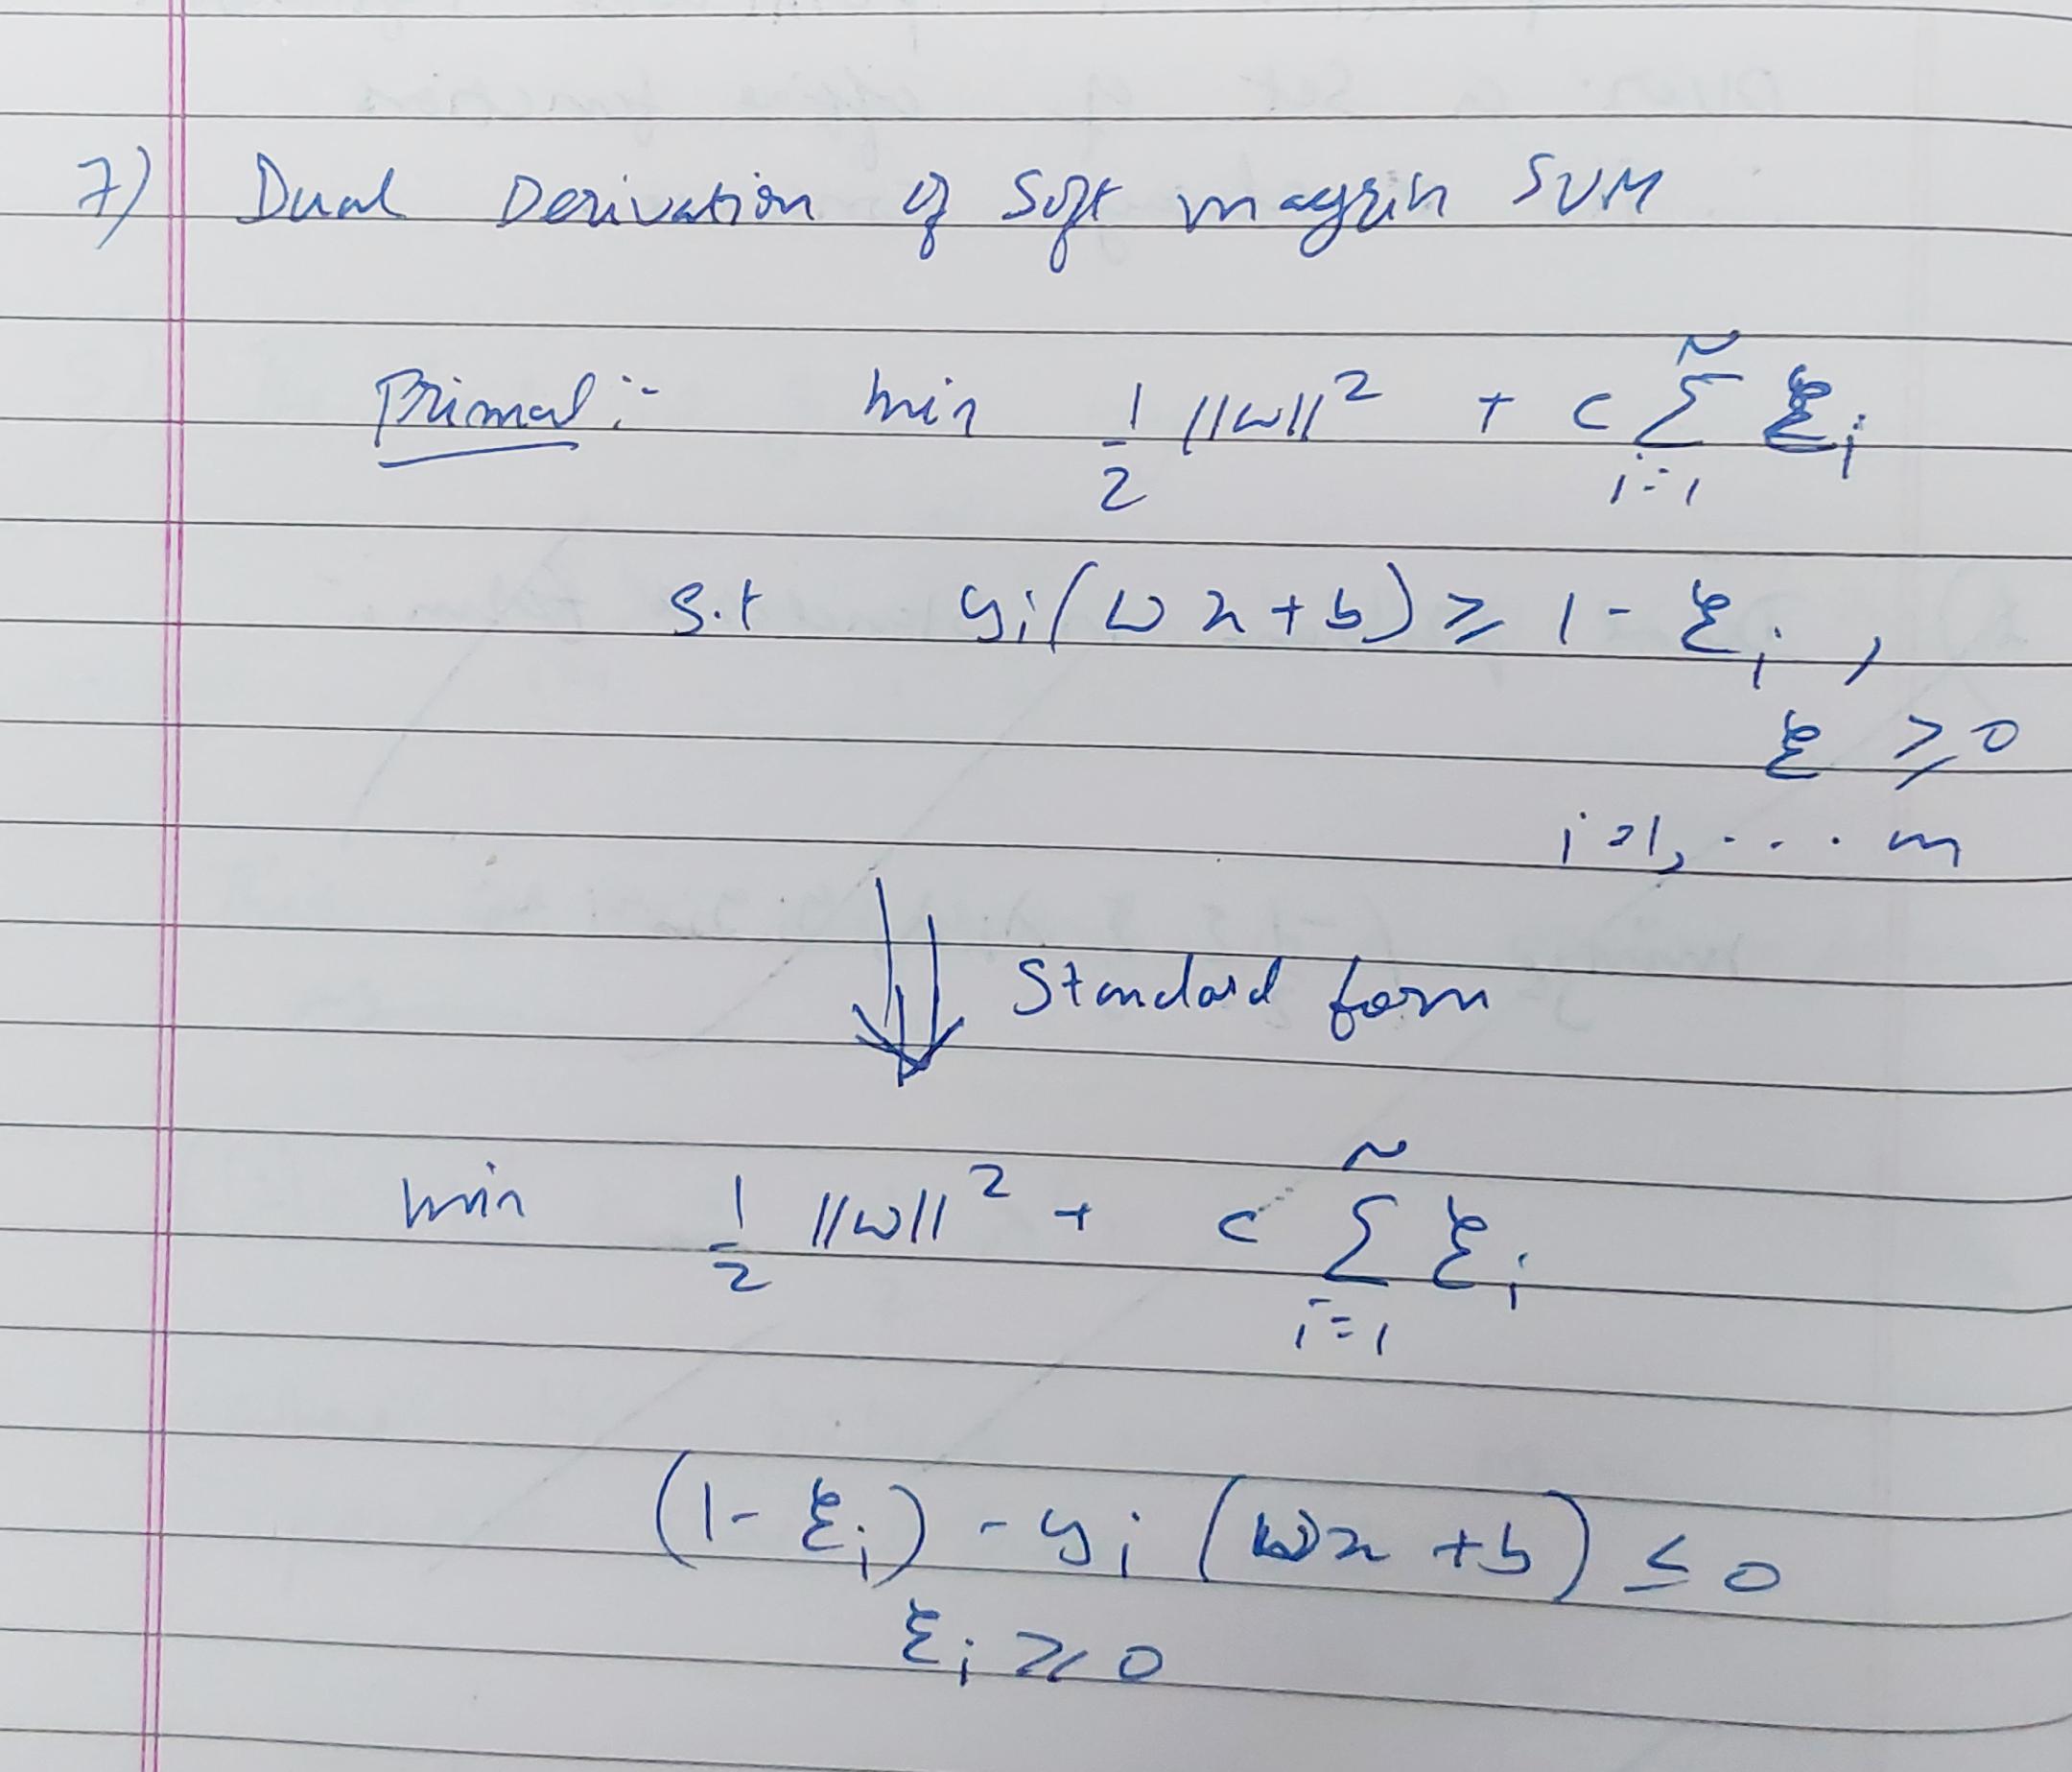 7) Dual Derivation of Soft magrin SVM
Primal :- min 1/2 ||w||² + c ~∑_{i=1} ξ_i
s.t y_i(w x + b) ≥ 1 - ξ_i ,
ξ ≥ 0
i=1, ... m
Standard form
min 1/2 ||w||² + c ~∑_{i=1} ξ_i
(1 - ξ_i) - y_i (wx + b) ≤ 0
ξ_i ≥ 0